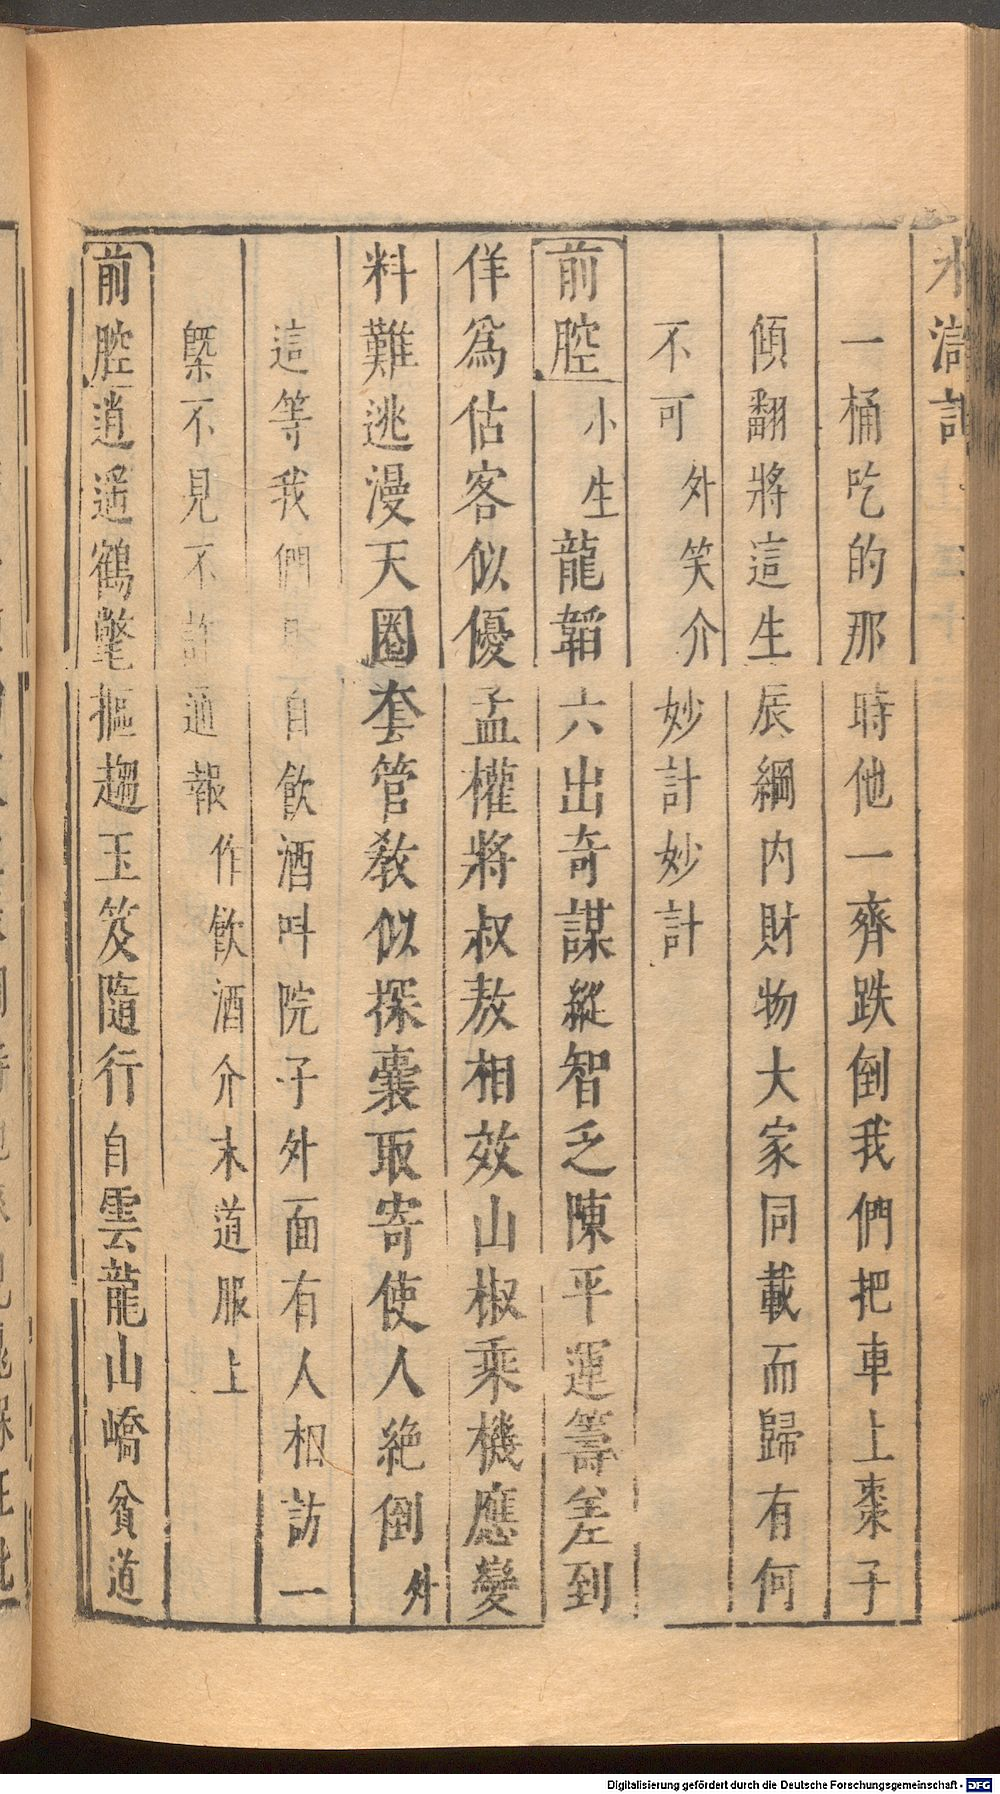 水滸記
一桶吃的那時他一齊跌倒我們把車上棗子
傾翻將這生辰綱内財物大家同載而歸有何
不可外笑介妙計妙計
前腔小生龍韜六出奇謀縱智乏陳平運籌差到
佯爲估客似優孟權將叔敖相效山椒乘機應變
料難逃漫天圈套管教似探囊取寄使人絶倒外
這等我們自飲酒叫院子外面有人相訪一
槩不見不許通報作飲酒介末道服上
前腔逍遥鶴氅摳趨玉笈隨行自雲龍山嶠貧道
Digitalisierung gefördert durch die Deutsche Forschungsgemeinschaft - DFG